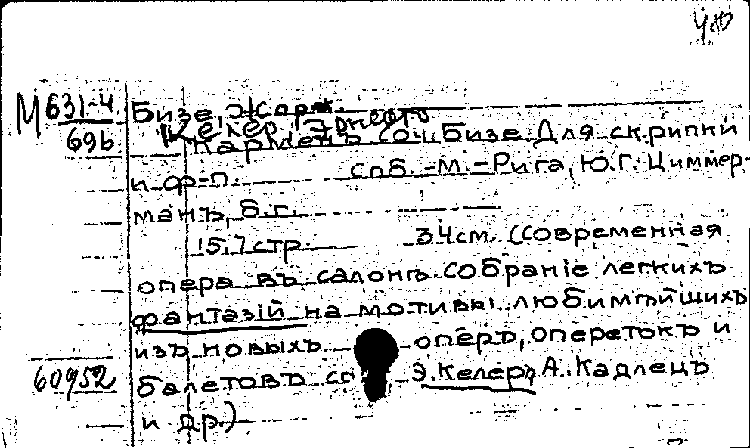 М 631-4
69b
Бизе, Жорж.
Келер, Эрнесто
Карменъ соч. Бизе. Для скрипки
и ф-п. Спб.-М.-Рига, Ю.Г. Циммер-
манъ, б.г.
15,7 стр. 34см. (Современная
опера въ салонѣ. Собранiе легкихъ
фантазiй на мотивы любимѣйшихъ
изъ новыхъ оперъ, опереток и
балетовъ Э. Келеръ, А. Кадлецъ
и др.)
60952